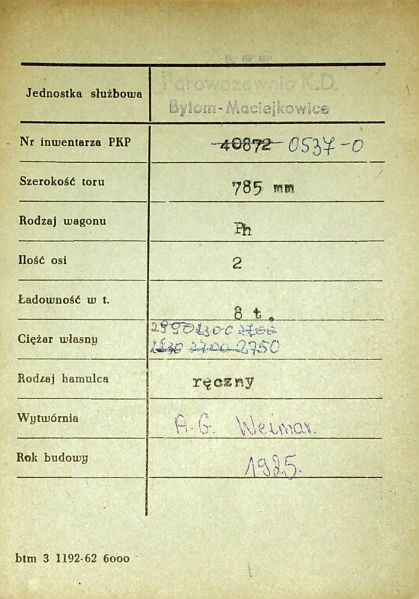 Jednostka służbowa
Parowozownia K.D.
Bytom-Maciejkowice
Nr inwentarza PKP 40872 0537-0
Szerokość toru 785 mm
Rodzaj wagonu Ph
Ilość osi 2
Ładowność w t. 8 t.
Ciężar własny
2700 2750
Rodzaj hamulca ręczny
Wytwórnia A.G. Weimar.
Rok budowy 1925.
btm 3 1192-62 6000